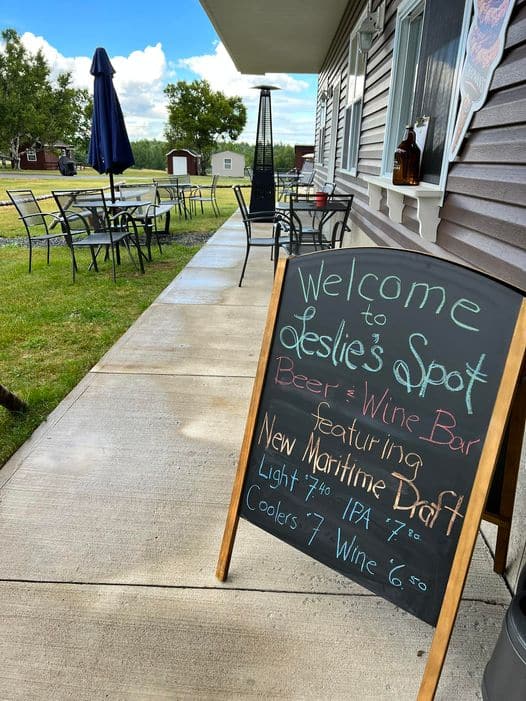 Welcome
to
Leslie's Spot
Beer & Wine Bar
featuring
New Maritime Draft
Light $7.40 IPA $7.80
Coolers $7 Wine $6.50